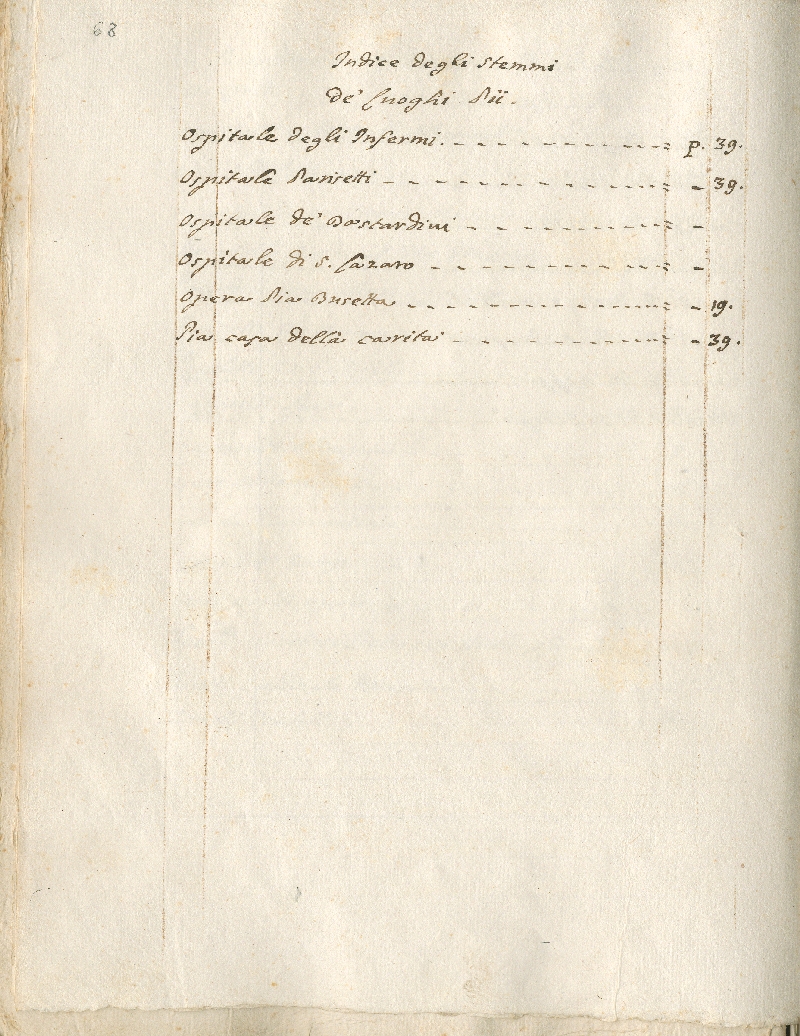 68
Indice degli Stemmi
de' Luoghi Pii.
Ospitale degli Infermi. - - - - - - - - - - - p. 39.
Ospitale Pansetti - - - - - - - - - - - - - 39.
Ospitale de' Bastardini - - - - - - - - - -
Ospitale di S. Lazaro - - - - - - - - - - -
Opera Pia Busetta - - - - - - - - - - - - 19.
Pia casa della carità - - - - - - - - - - - 39.